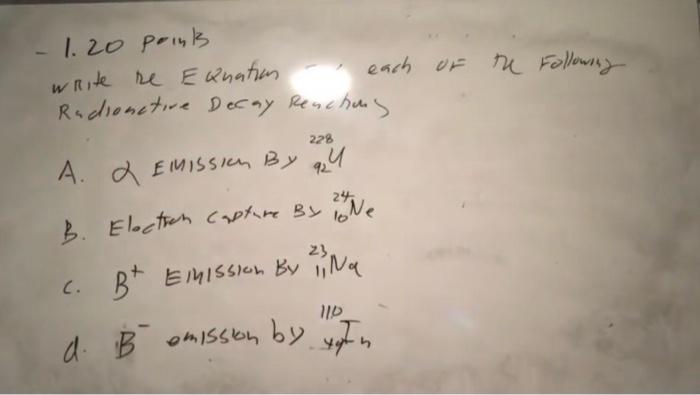 - 1. 20 points
Write the Equation each OF the Following
Radioactive Decay Reactions
A. α EMISSION By ²²⁸₉₂U
B. Electron Capture By ²⁴₁₀Ne
C. B⁺ EMISSION By ²³₁₁Na
d. B⁻ emission by ¹¹⁰₄₉In